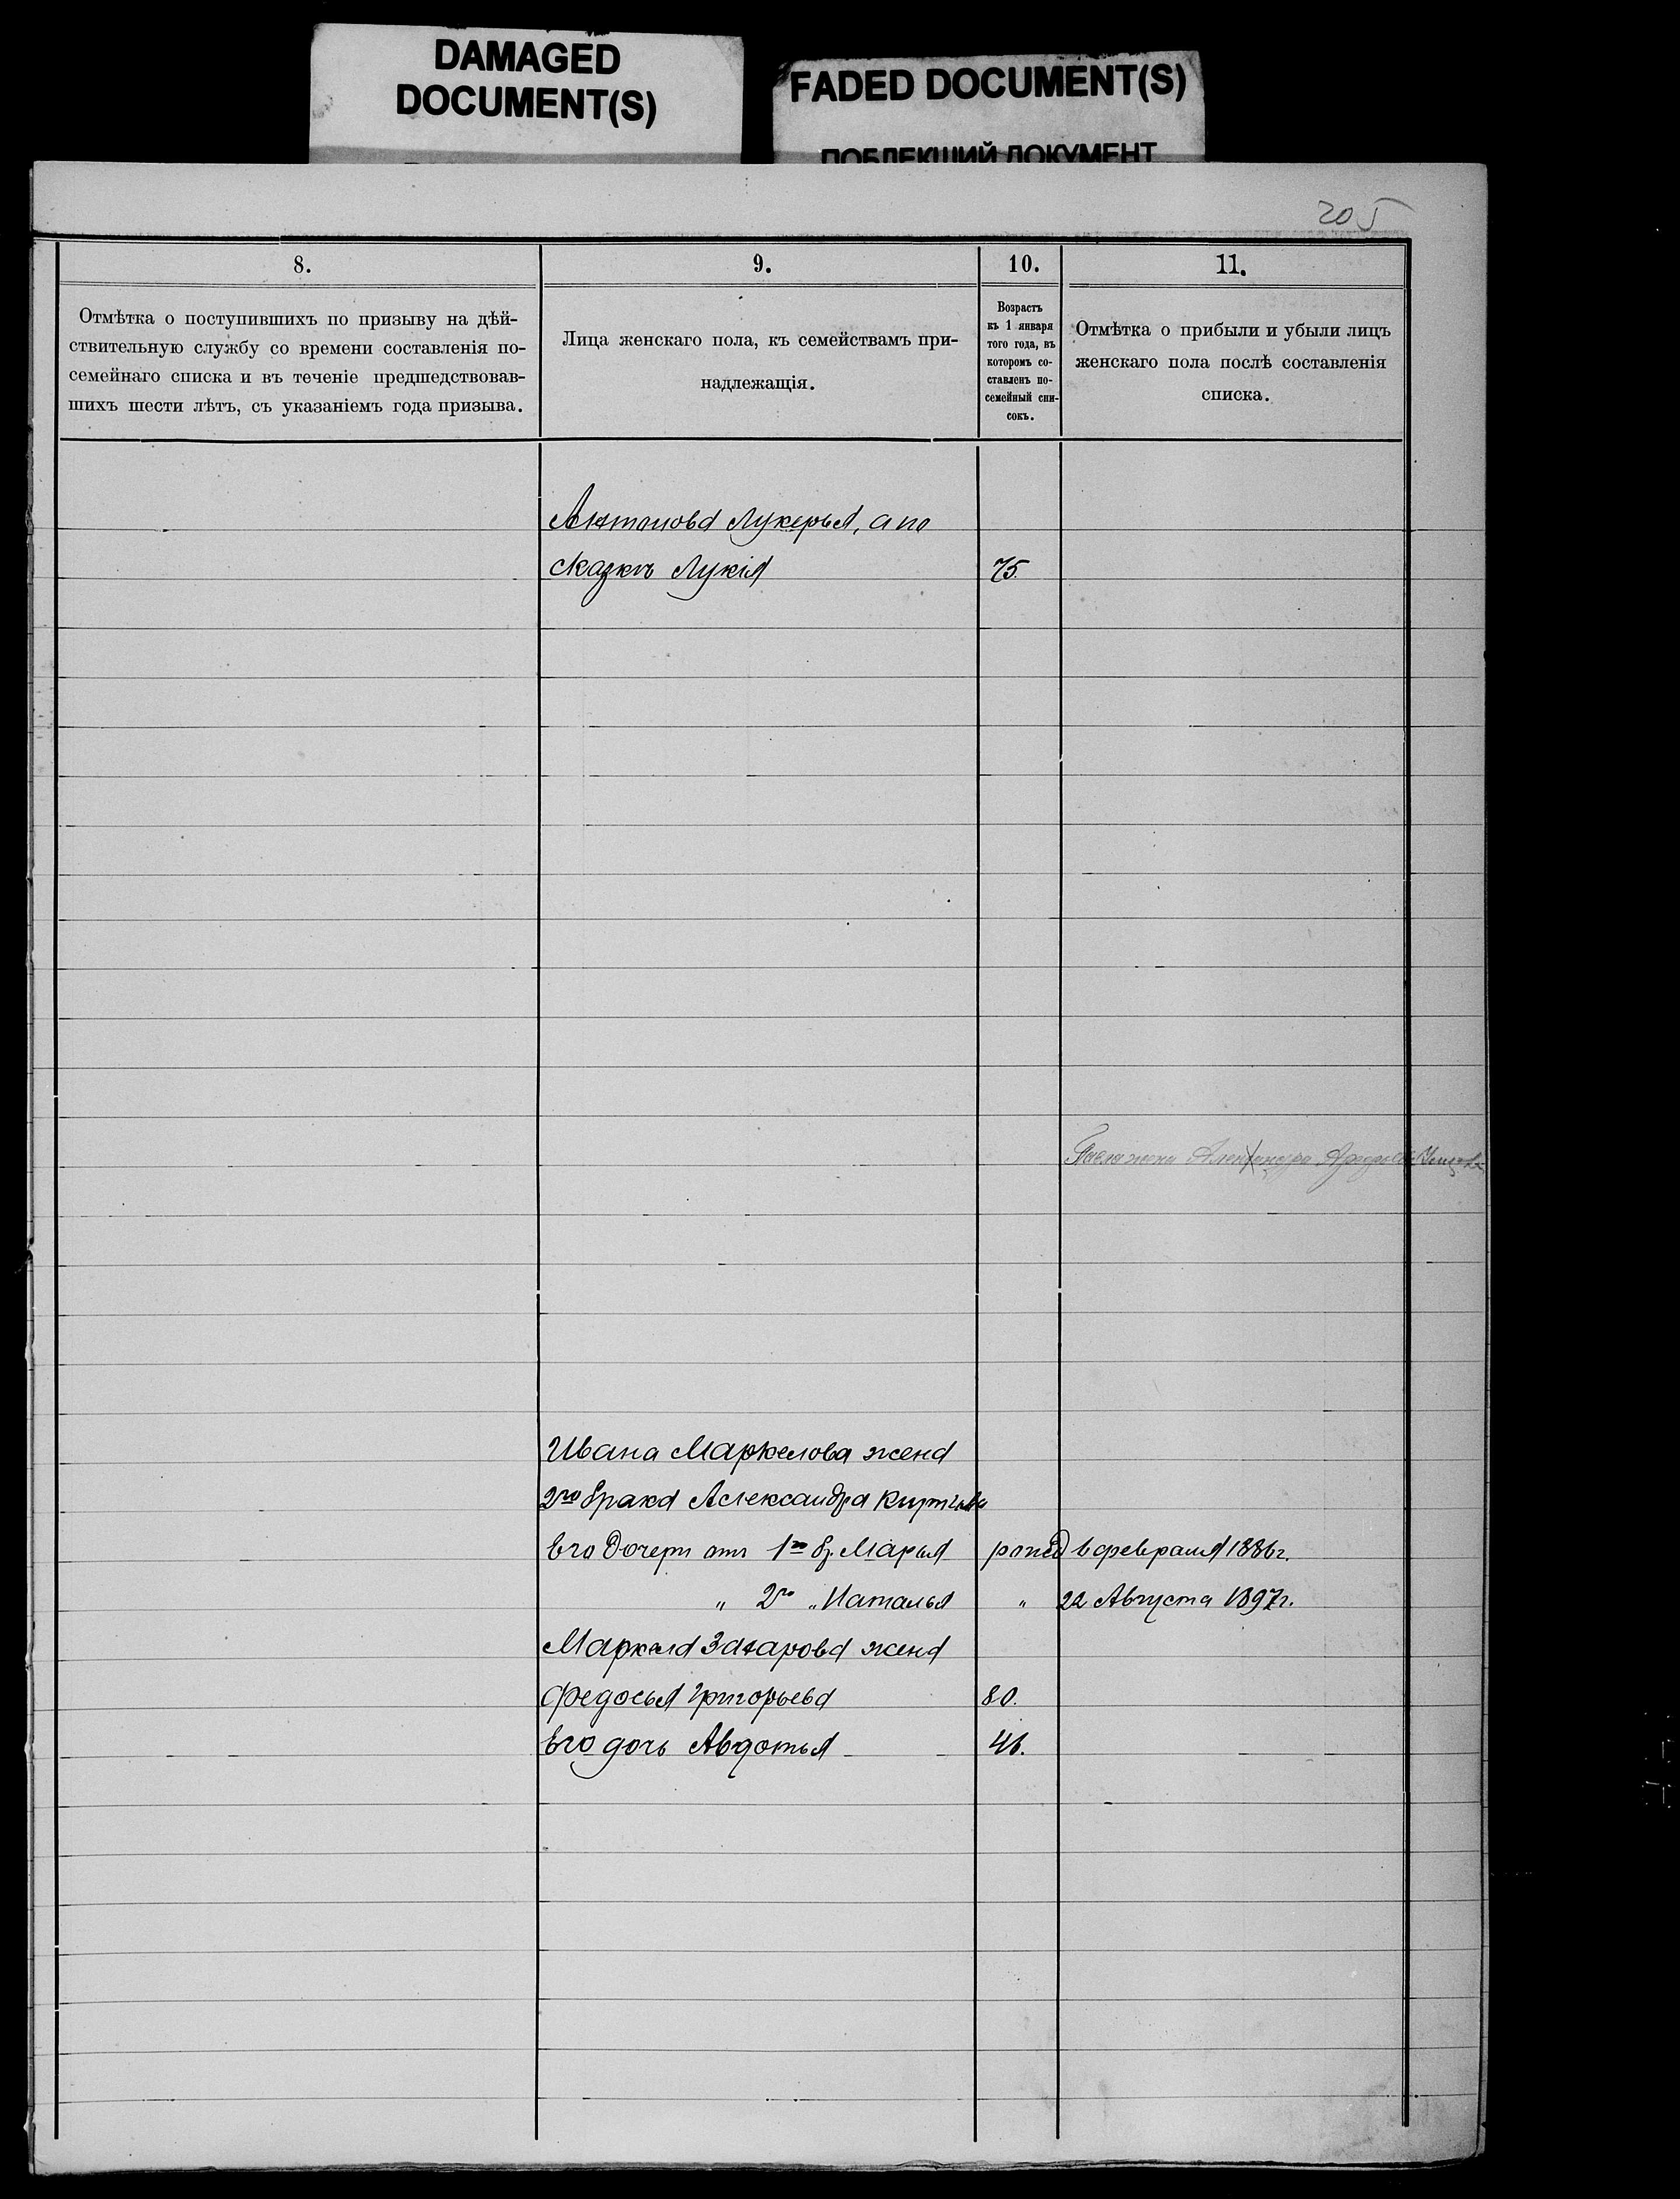 DAMAGED
DOCUMENT(S)
FADED DOCUMENT(S)
ПОБЛЕКШИЙ ДОКУМЕНТ
205
8.
9.
10.
11.
Отмѣтка о поступившихъ по призыву на дѣй-
ствительную службу со времени составленія по-
семейнаго списка и въ теченіе предшедствовав-
шихъ шести лѣтъ, съ указаніемъ года призыва.
Лица женскаго пола, къ семействамъ при-
надлежащія.
Возрастъ
къ 1 января
того года, въ
которомъ со-
ставленъ по-
семейный спи-
сокъ.
Отмѣтка о прибыли и убыли лицъ
женскаго пола послѣ составленія
списка.
Антонова Лукерья, а по
сказкѣ Лукія 75.
Павла жена Александра
Ивана Маркелова жена
2го брака Александра
Его дочери отъ 1го бр. Марья в февраля 1886 г.
„ 2го „ Наталья „ 22 Августа 1897 г.
Маркела Захарова жена
Федосья Григорьева 80.
Его дочь Авдотья 46.